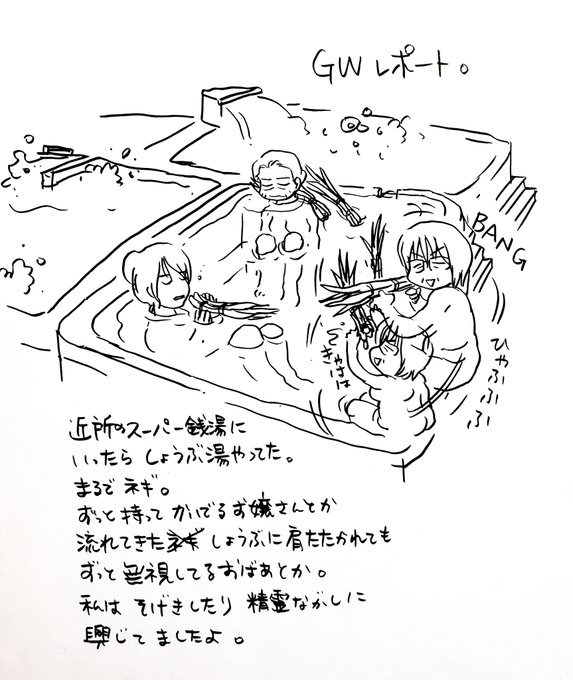 GW レポート。
BANG
ひゃふふふふ
きゃはは
近所のスーパー銭湯に
いったら しょうぶ湯やってた。
まるで ネギ。
ずっと持って かいでるお嬢さんとか
流れてきた ネギ しょうぶに肩たたかれても
ずっと無視してるおばあとか。
私は そげきしたり 精霊ながしに
興じてましたよ。